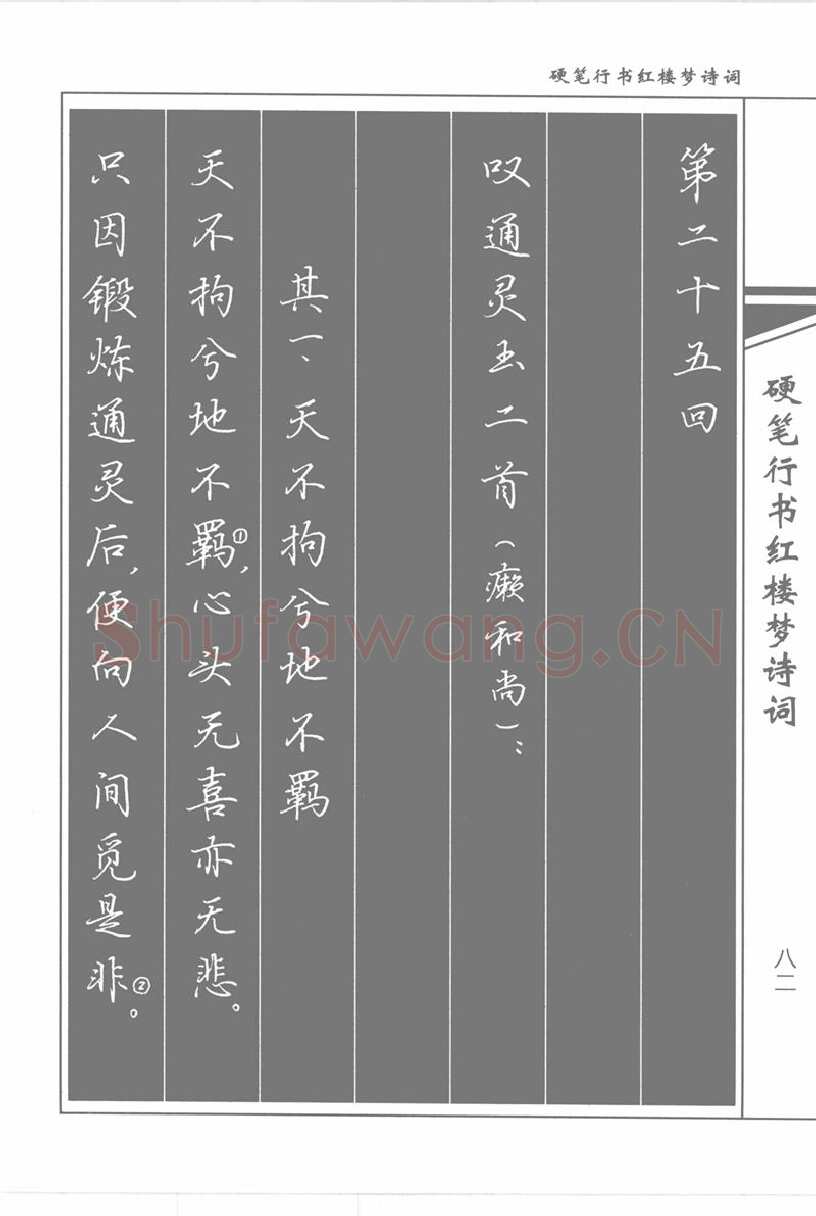 硬笔行书红楼梦诗词
第二十五回
叹通灵玉二首（癞和尚）：
其一、天不拘兮地不羁
天不拘兮地不羁①，心头无喜亦无悲。
只因锻炼通灵后，便向人间觅是非②。
硬笔行书红楼梦诗词
八二
Shufawang.CN